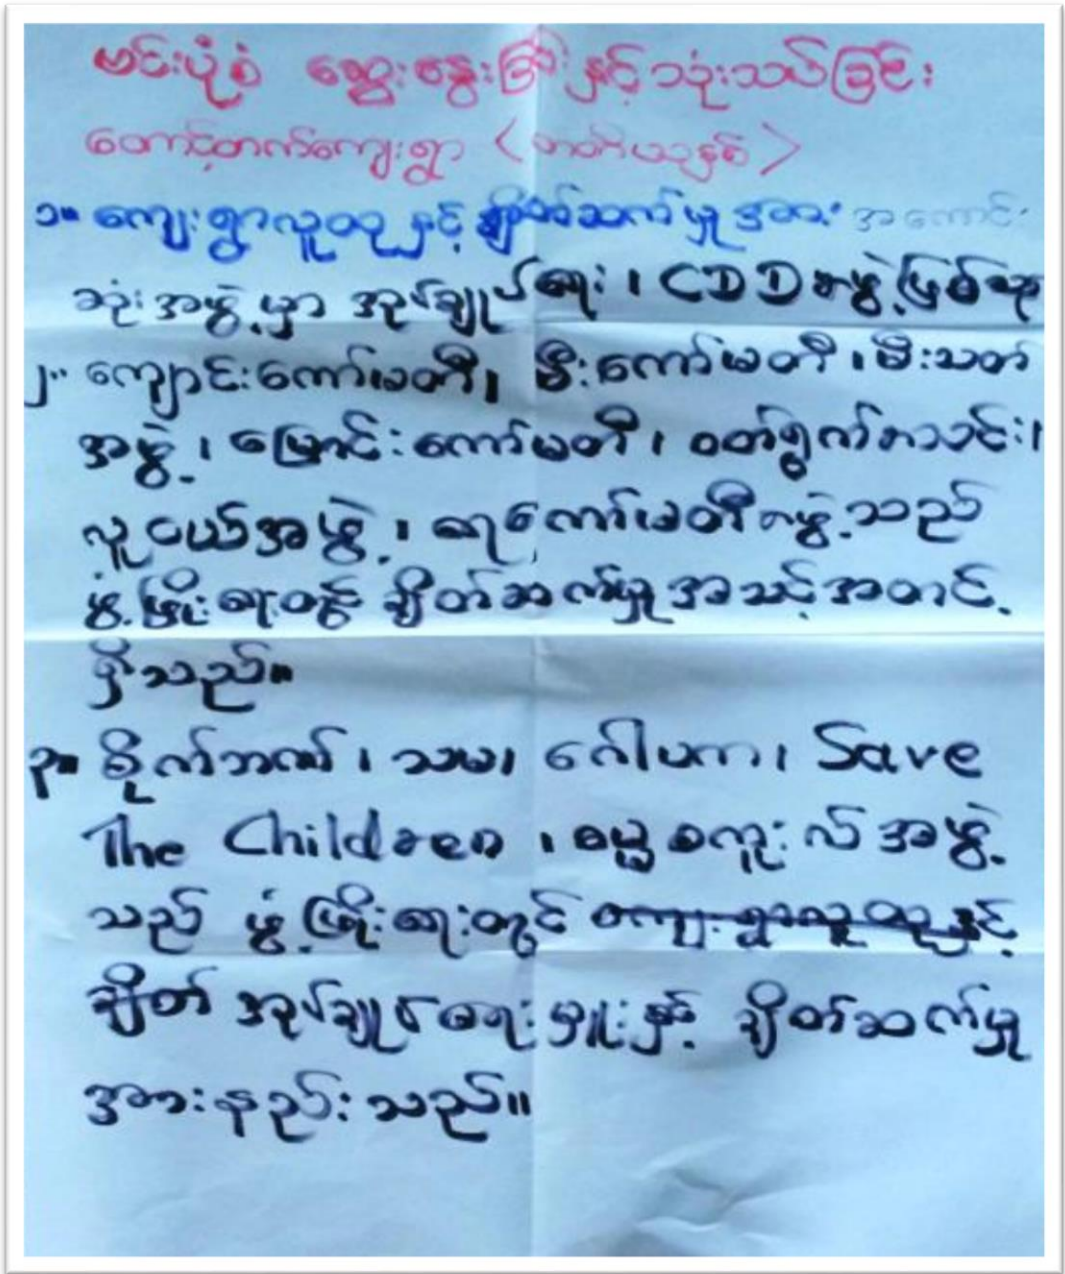 ဗင်းပုံစံ ဆွေးနွေးခြင်းနှင့် သုံးသပ်ခြင်း
တောင့်တက်ကျေးရွာ (တတိယနှစ်)
၁။ ကျေးရွာလူထုနှင့် ချိတ်ဆက်မှု အား အကောင်း
ဆုံးအဖွဲ့မှာ အုပ်ချုပ်ရေး ၊ CDD အဖွဲ့ဖြစ်သူ
၂။ ကျောင်းကော်မတီ၊ မီးကော်မတီ ၊ မီးသတ်
အဖွဲ့ ၊ မြောင်းကော်မတီ ၊ ဝတ်ရွတ်အသင်း၊
လူငယ်အဖွဲ့ ၊ ရေကော်မတီအဖွဲ့သည်
ဖွံ့ဖြိုးရေးတွင် ချိတ်ဆက်မှုအသင့်အတင့်
ရှိသည်။
၃။ စိုက်ဘဏ် ၊ သမ၊ ဂေါပက၊ Save
The Children ၊ မေတ္တာစကူးလ် အဖွဲ့
သည် ဖွံ့ဖြိုးရေးတွင် ကျေးရွာလူထုနှင့်
ချိတ် အုပ်ချုပ်ရေးမှူးနှင့် ချိတ်ဆက်မှု
အားနည်းသည်။